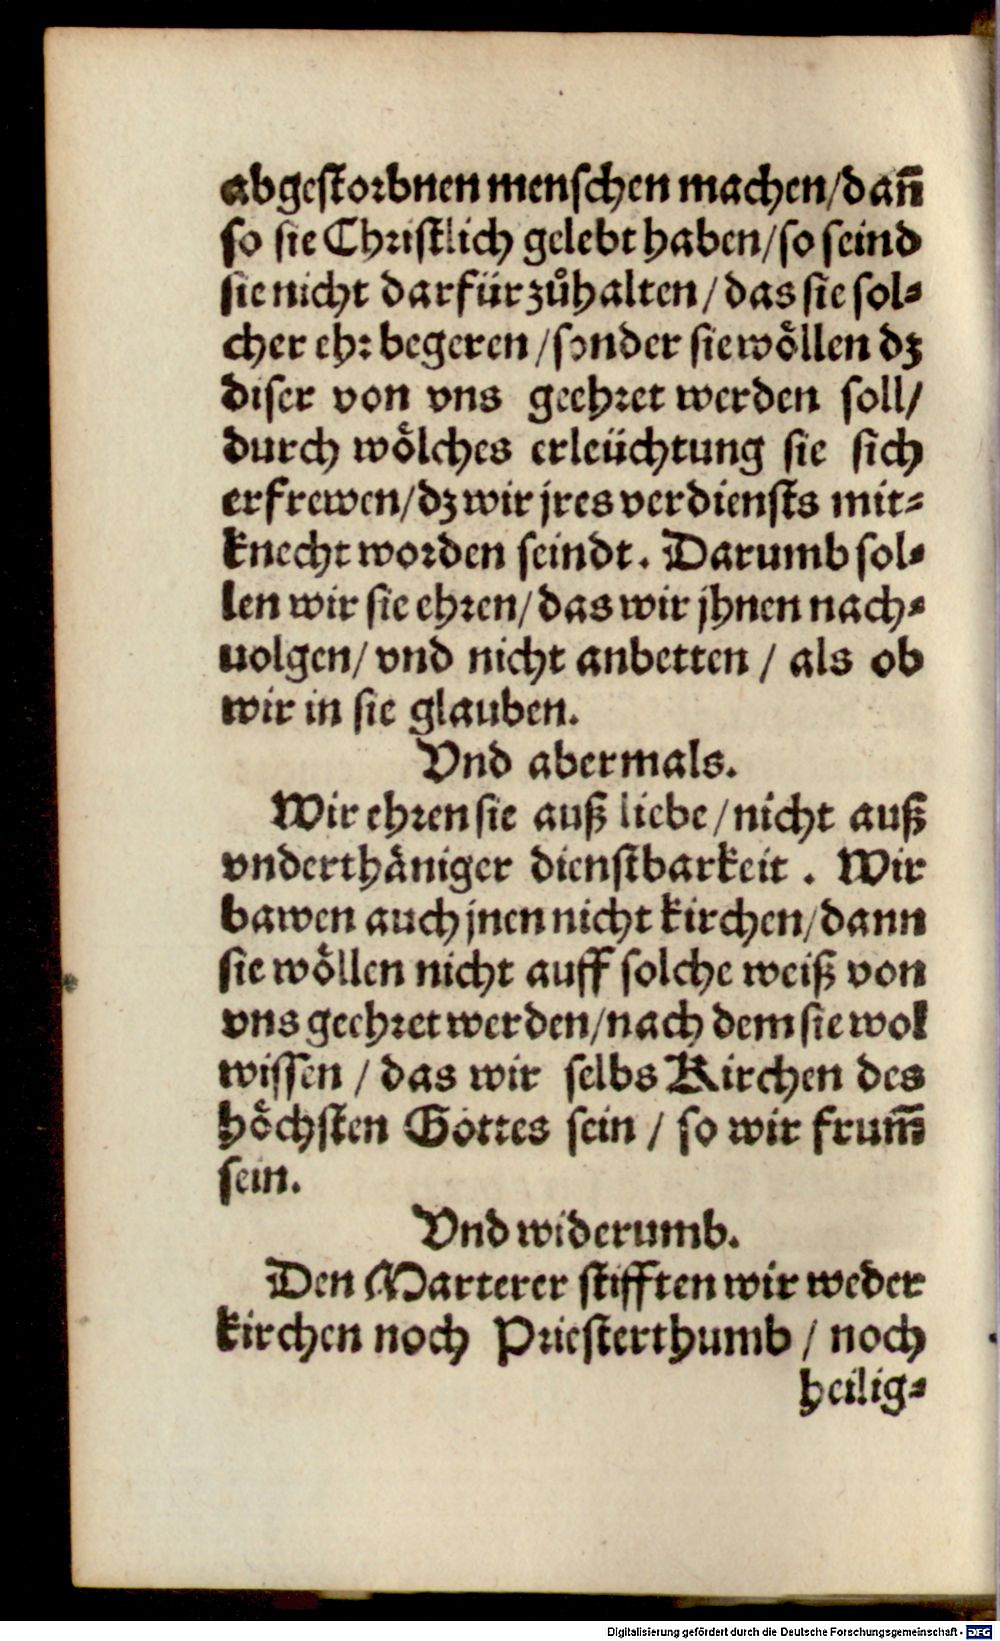 abgestorbnen menschen machen/dañ
so sie Christlich gelebt haben/so seind
sie nicht darfür zůhalten/das sie sol⸗
cher ehr begeren/sonder sie wöllen dz
diser von vns geehret werden soll/
durch wölches erleüchtung sie sich
erfrewen/dz wir jres verdiensts mit⸗
knecht worden seindt. Darumb sol⸗
len wir sie ehren/das wir jhnen nach⸗
uolgen/vnd nicht anbetten/als ob
wir in sie glauben.
Vnd abermals.
Wir ehren sie auß liebe/nicht auß
vnderthäniger dienstbarkeit. Wir
bawen auch jnen nicht kirchen/dann
sie wöllen nicht auff solche weiß von
vns geehret werden/nach dem sie wol
wissen/das wir selbs Kirchen des
höchsten Gottes sein/so wir frum̄
sein.
Vnd widerumb.
Den Marterer stifften wir weder
kirchen noch Priesterthumb/noch
heilig⸗
Digitalisierung gefördert durch die Deutsche Forschungsgemeinschaft - DFG